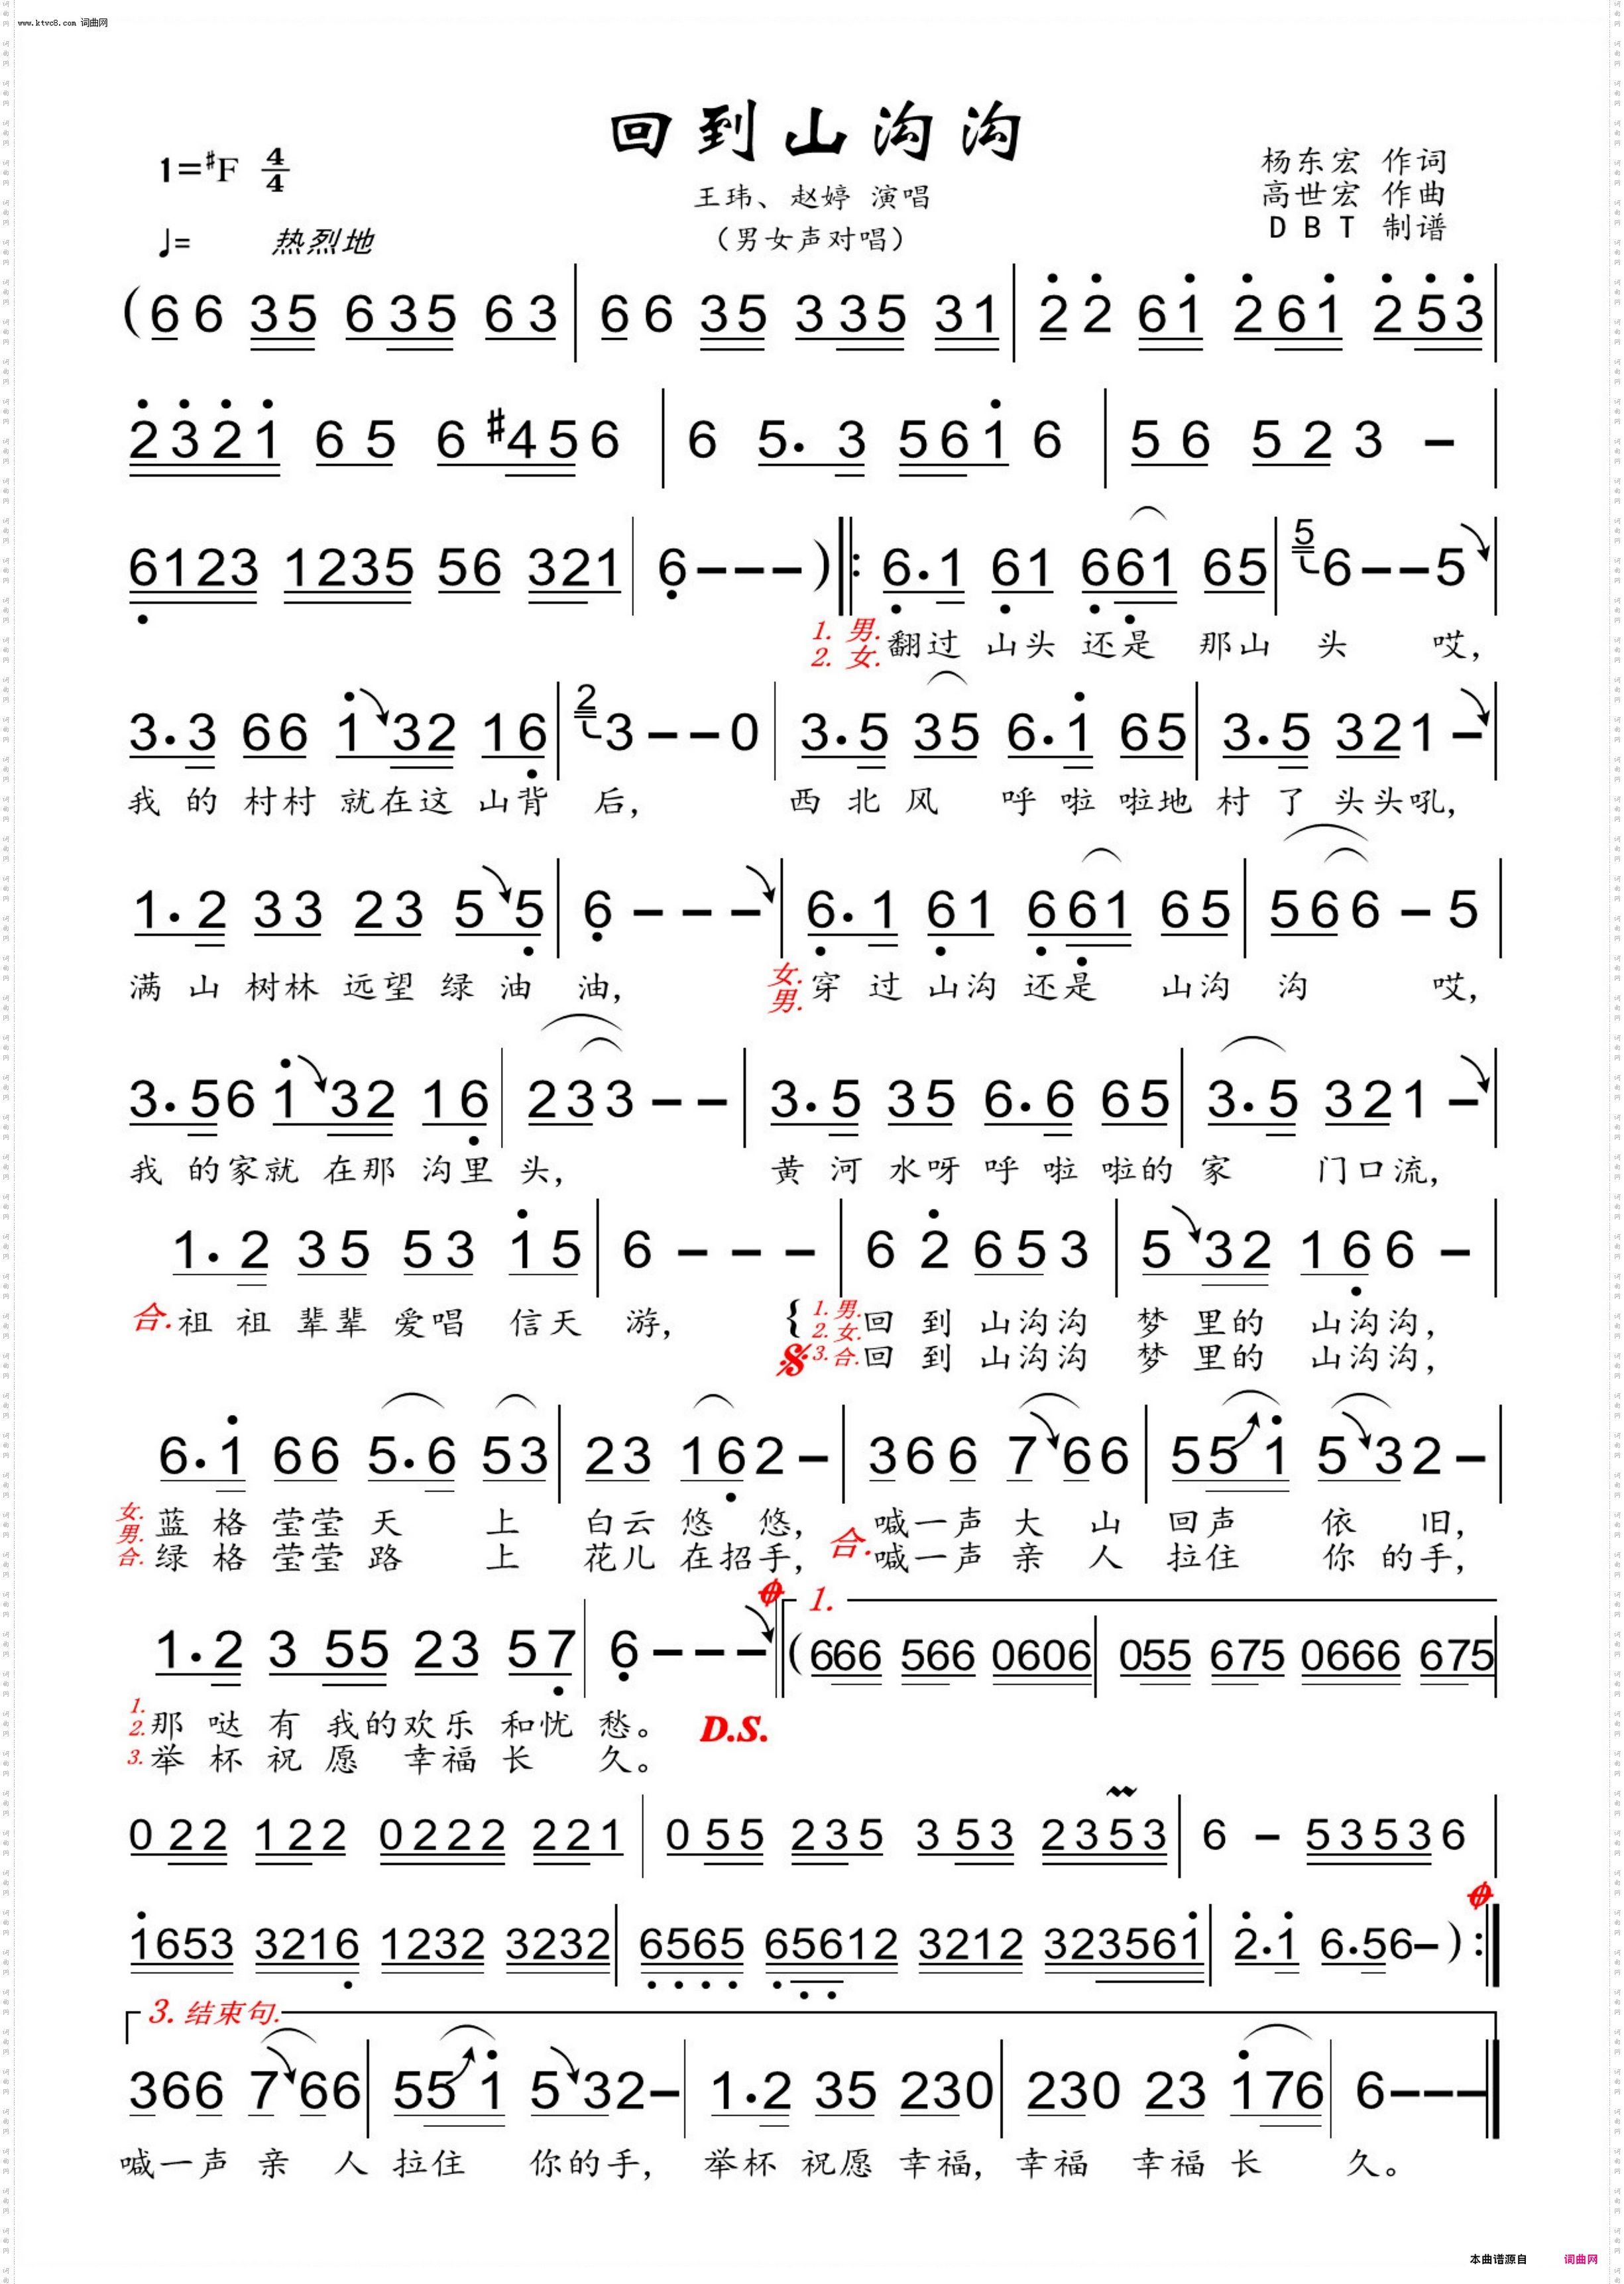 www.ktvc8.com 词曲网
回到山沟沟
1=#F 4/4
王玮、赵婷 演唱
(男女声对唱)
杨东宏 作词
高世宏 作曲
DBT 制谱
♩= 热烈地
(6 6 35 635 63 | 6 6 35 335 31 | 2 2 61 261 253 |
2321 65 6#456 | 6 5. 3 561 6 | 56 52 3 - |
6123 1235 56 321 | 6 - - - ) ‖: 6.1 61 661 65 | 5 6 - - 5 |
1. 男. 翻过 山头 还是 那山 头 哎,
2. 女.
3.3 66 1 32 16 | 2 3 - - 0 | 3.5 35 6.1 65 | 3.5 321 - |
我 的 村村 就在这 山背 后, 西 北 风 呼 啦 啦地 村 了 头头吼,
1.2 33 23 55 | 6 - - - | 6.1 61 661 65 | 566 - 5 |
满 山 树林 远望 绿 油 油, 女. 男. 穿 过 山沟 还是 山沟 沟 哎,
3.56 1 32 16 | 233 - - | 3.5 35 6.6 65 | 3.5 321 - |
我 的家就 在那 沟里 头, 黄 河 水呀 呼 啦 啦的 家 门口流,
1.2 35 53 15 | 6 - - - | 6 2 653 | 5 32 166 - |
合. 祖 祖 辈辈 爱唱 信天 游, { 1. 男. 2. 女. 回 到 山沟沟 梦 里的 山沟沟,
3. 合. 回 到 山沟沟 梦 里的 山沟沟,
6.1 66 5.6 53 | 23 162 - | 366 766 | 551 532 - |
女. 男. 蓝 格 莹莹 天 上 白云 悠 悠, 合. 喊一声 大 山 回声 依 旧,
合. 绿 格 莹莹 路 上 花儿 在招手, 喊一声 亲 人 拉住 你 的手,
1.2 3 55 23 57 | 6 - - - ‖ 1. (666 566 0606 | 055 675 0666 675
1. 2. 那 哒 有 我的欢乐 和忧 愁。 D.S.
3. 举 杯 祝 愿 幸福 长 久。
022 122 0222 221 | 055 235 353 2353 | 6 - 53536 |
1653 3216 1232 3232 | 6565 65612 3212 323561 | 2.1 6.56- ) :‖
3. 结束句.
366 766 | 551 532 - | 1.2 35 230 | 230 23 176 | 6 - - - ‖
喊一声 亲 人 拉住 你的手, 举杯 祝愿 幸福, 幸福 幸福 长 久。
本曲谱源自 词曲网